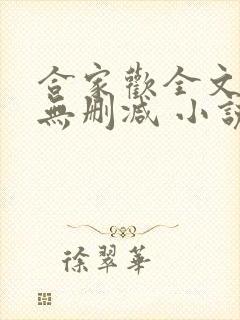 合家歡全文
無刪減 小說
徐翠華